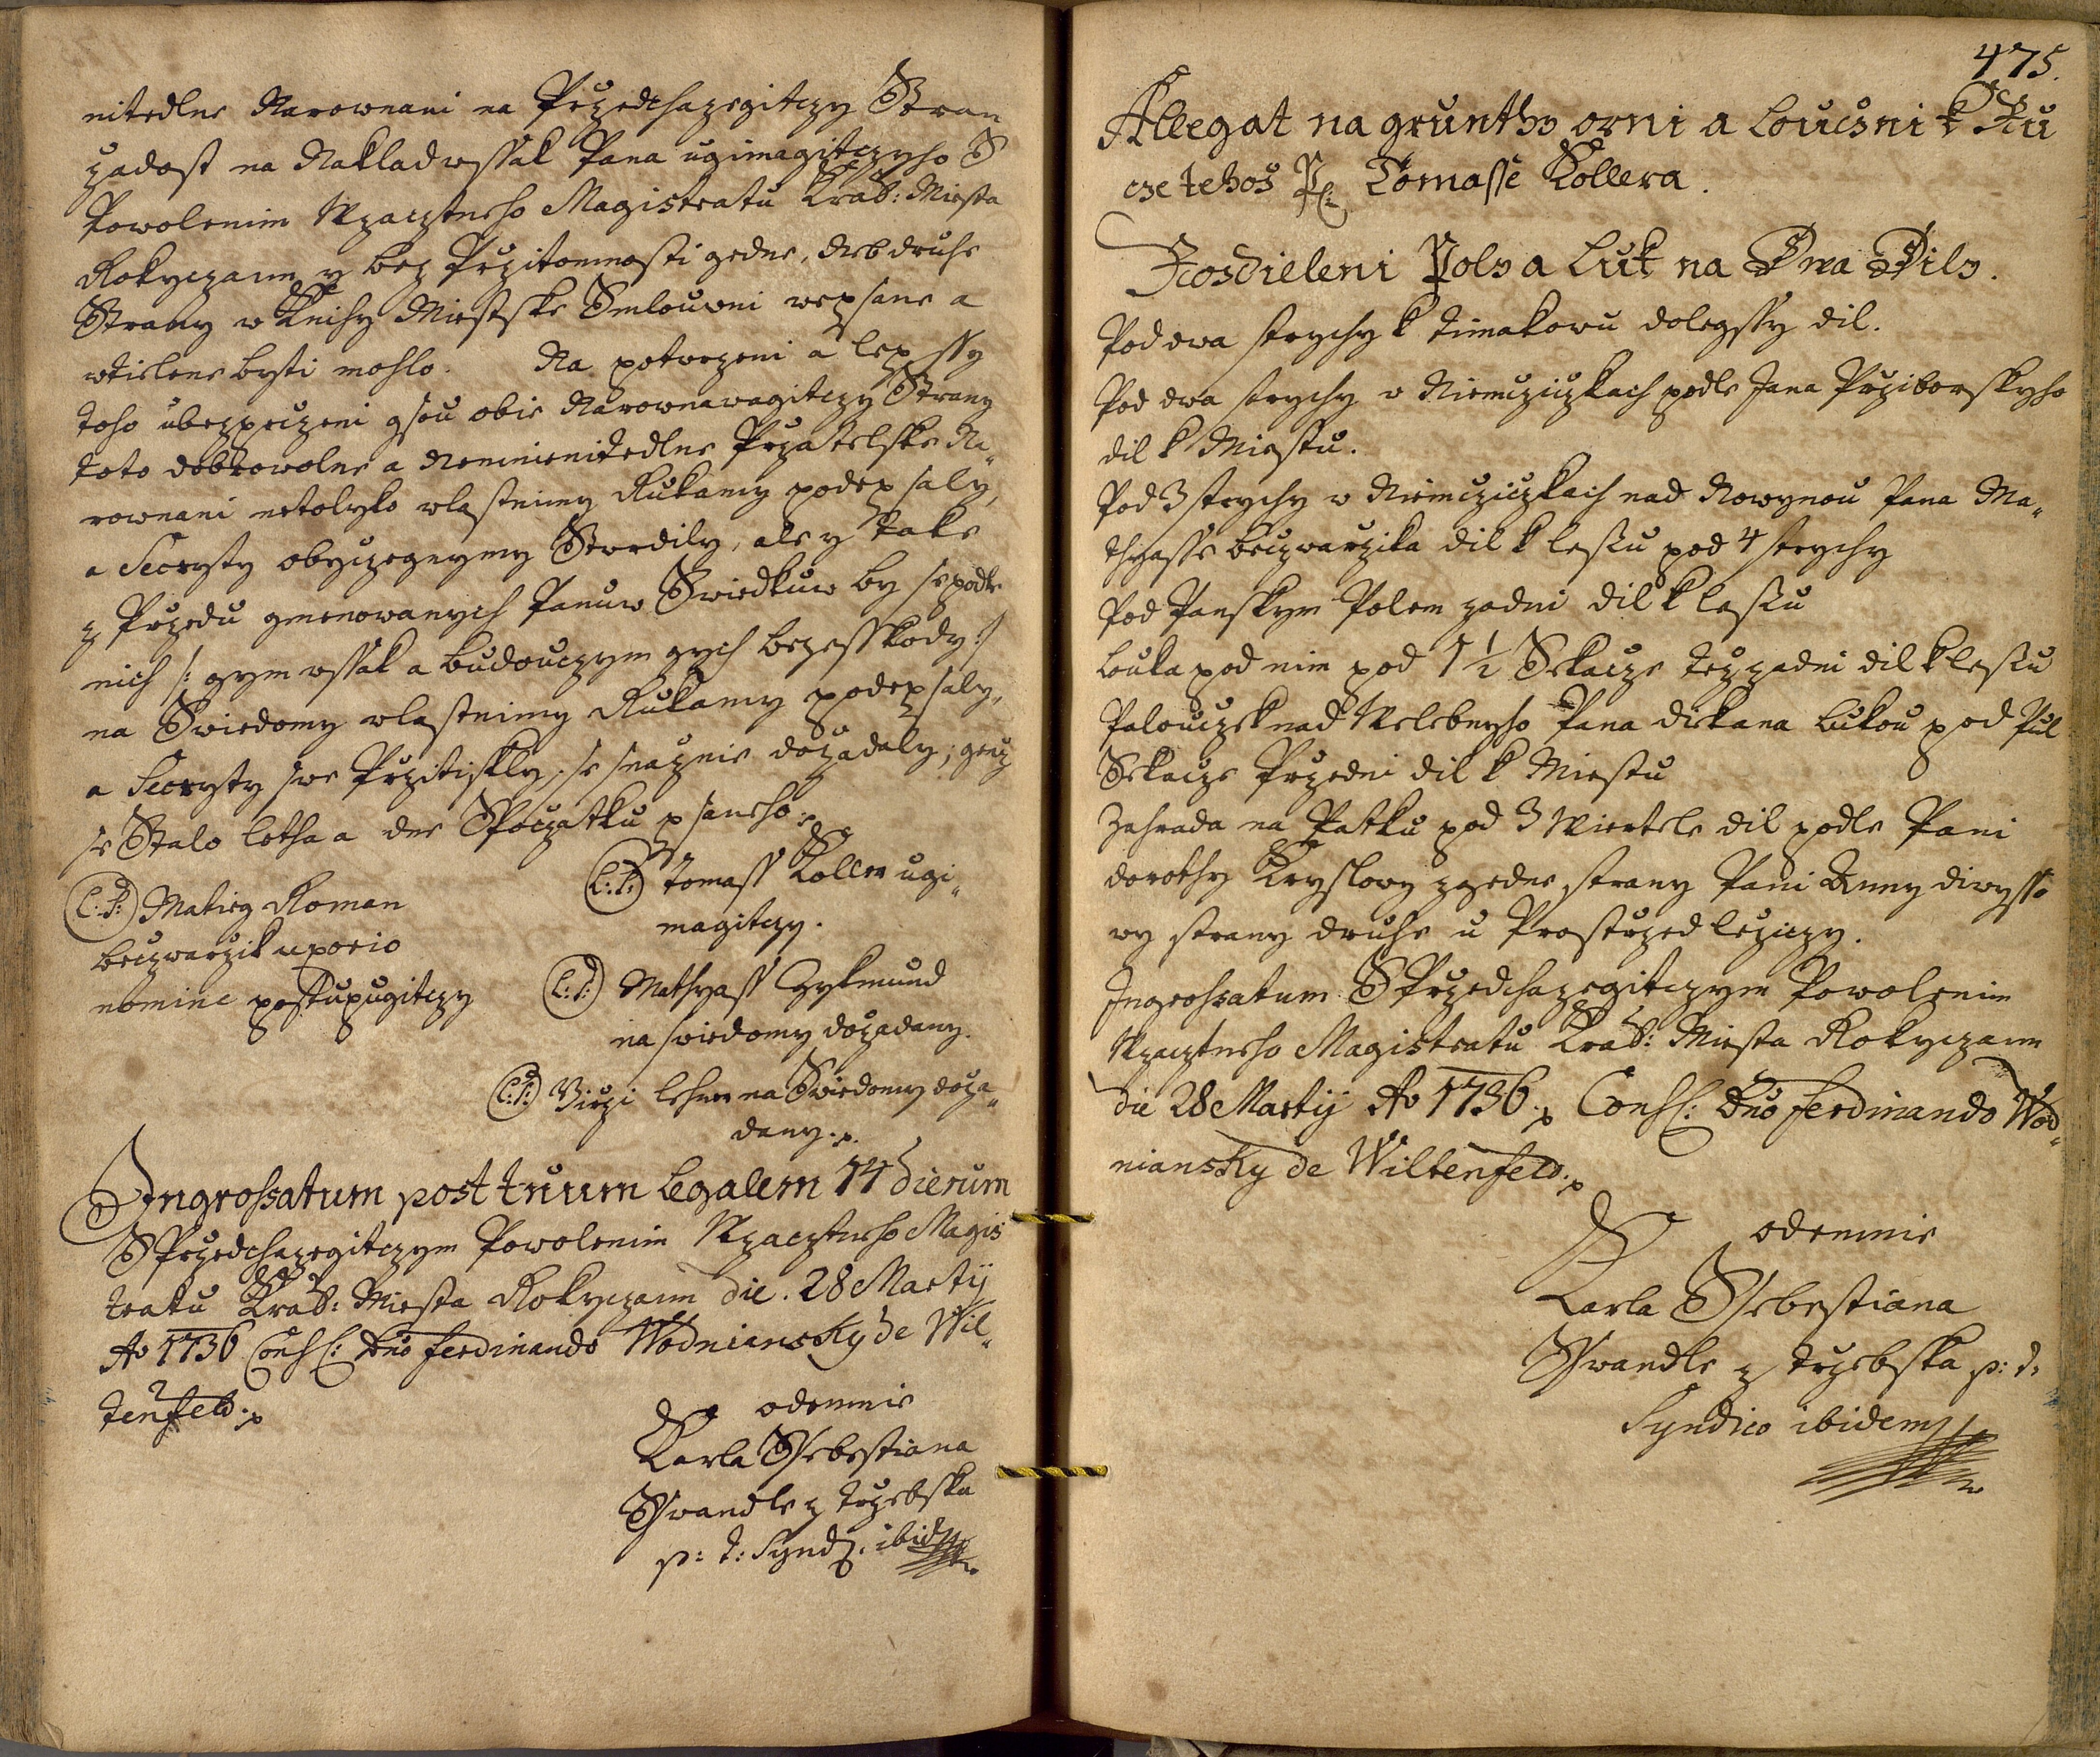 nitedlne Narownani na Przedchazegitczy Stran
zadost na Nakladwssak Pana ugimagitczyho S
Powolenim Wzacztneho Magistratu Kral: Miesta
Rokyczann y bez Przitomnosti gedne, neb druhe
Strany w Knihy Miestske Smlouwni wepsane a
wtielene byti mohlo. Na potwrzeni a lepssy
toho ubezpeczeni gsou obie Narownawagitczy Strany
toto dobrowolne a Nemienitedlne Przatelske Na„
rownani netolyko wlastnimy Rukamy podepsaly,
a Secrety obyczegnymy Stwrdily, ale y take
z Przedu gmenowanych Panuw Swiedkuw by se podle
nich /: gym wssak a budouczym gych bezesskody :/
na Swiedomy wlastnimy Rukamy podepsaly,
a Secrety swe Przitiskly, se snaznie dozadaly; genz
se Stalo letha a dne Spoczatku psaneho
(L: S:) Matieg Roman
Beczwarzik uxorio
nomine postupugitczy
(L: S:) Tomass Koller ugi„
magitczy.
(L: S:) Mathyass Zykmund
na swiedomy dozadany.
(L: S:) Girzi Lehner na Swiedomy doza„
dany.
Ingrossatum post trium legalem 14 dierum
S Przedchazegitczym Powolenim Wzacztneho Magis
tratu Kral: Miesta Rokyczann die. 28 Martij
Ao 1736 Cons: Dno Ferdinando Wodniansky de Wil„
tenfeld.
odemnie
Karla Ssebestiana
Sswandle z Trzebska
p: t: Synd: ibid
475.
Allegat na grunthy orni a Louczni k Ru
cze tehoz P: Tomasse Kollera.
Rozdieleni Poly a Luk na Dwa Dily.
Pod dwa strychy k Timakowu dolegssy dil.
Pod dwa strychy w Niemcziczkach podle Jana Prziborskyho
dil k Miestu.
Pod 3 strychy w Niemcziczkach nad Nowynou Pana Ma„
thyasse Beczwarzika dil k lesu pod 4 strychy
Pod Panskym Polem zadni dil k lesu
Louka pod nim pod 1 1/2 Sekacze tez zadni dil k lesu
Palouczek nad Welebnyho Pana diekana lukou pod Pul
Sekacze Przedni dil k Miestu
Zahrada na Patku pod 3 Wiertele dil podle Pani
dorothy Kryslowy z gedne strany Pani Anny diwisso
wy strany druhe u Prostrzed lezyczy.
Ingrossatum S Przedchazegitczym Powolenim
Wzacztneho Magistratu Kral: Miesta Rokyczann
die 28 Martij Ao 1736. Cons: Dno Ferdinando Wod„
niansky de Wiltenfeld.
odemnie
Karla Ssebestiana
Sswandle z Trzebska p: t:
Syndico ibidem